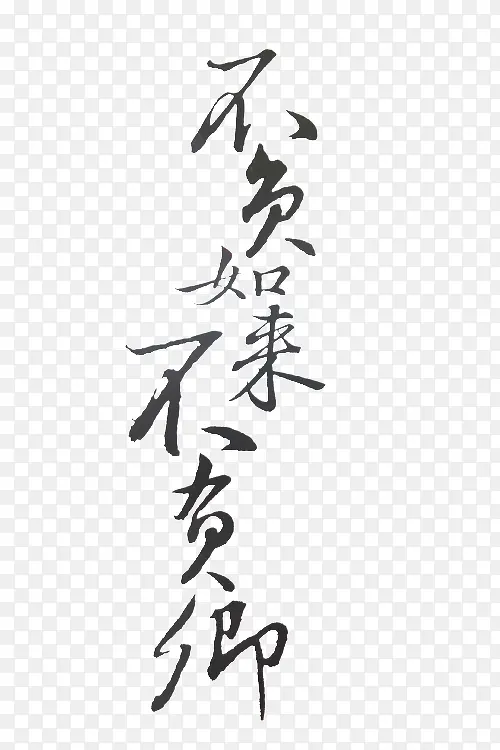 不负如来不负卿